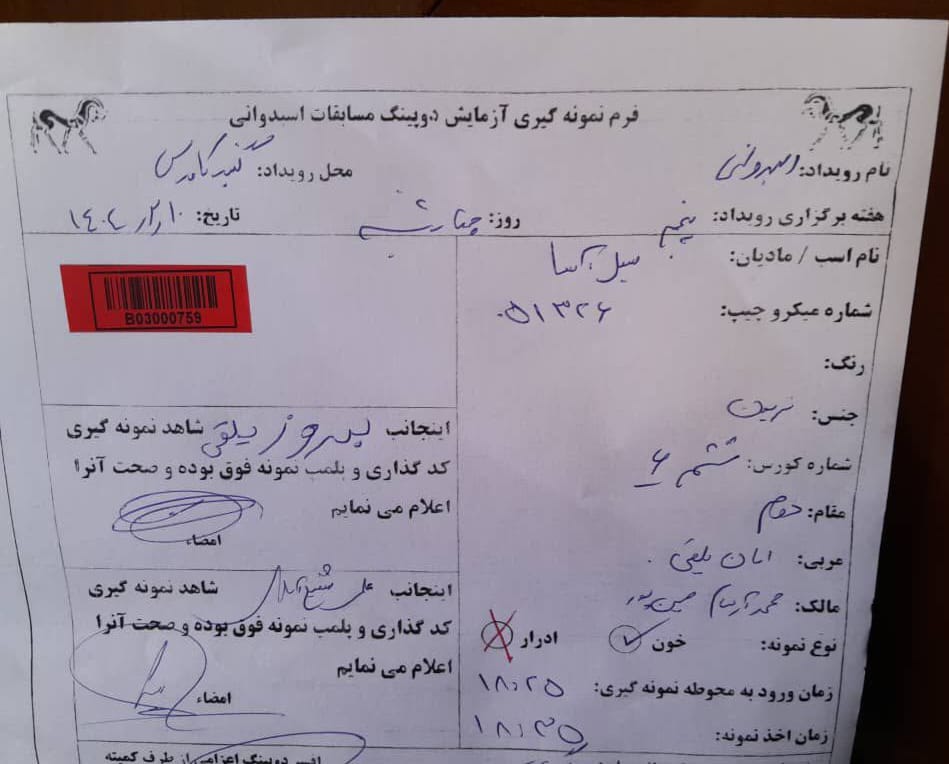 فرم نمونه گیری آزمایش دوپینگ مسابقات اسبدوانی
نام رویداد: اسبدوانی محل رویداد: گنبد کاووس
هفته برگزاری رویداد: پنجم روز: چهارشنبه تاریخ: ۱۴۰۴/۲/۱۰
نام اسب / مادیان: سیل آسا
شماره میکرو چیپ: ۰۵۱۳۲۶
رنگ:
جنس: نریان
شماره کورس: ششم ۶
مقام: دوم
عربی: امان یلقی
مالک: محمد آرسام حسین پور
نوع نمونه: خون ادرار
زمان ورود به محوطه نمونه گیری: ۱۸:۲۵
زمان اخذ نمونه: ۱۸:۳۵
B03000759
اینجانب بهروز یلقی شاهد نمونه گیری
کد گذاری و پلمب نمونه فوق بوده و صحت آنرا
اعلام می نمایم
امضاء
اینجانب علی شاهد نمونه گیری
کد گذاری و پلمب نمونه فوق بوده و صحت آنرا
اعلام می نمایم
امضاء
افسر دوپینگ اعزامی از طرف کمیته